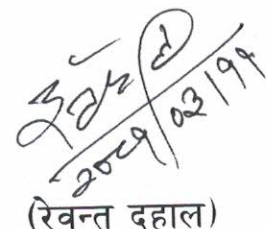 २०८१/०३/११
(रेवन्त दहाल)